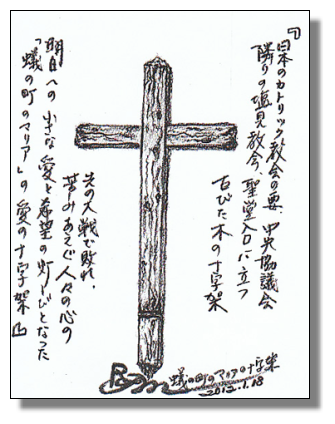 『日本のカトリック教会の要、中央協議会
隣りの塩見教会、聖堂入口に立つ
古びた木の十字架
先の大戦で敗れ、
苦みあえぐ人々の心の
明日への小さな愛と希望の灯びとなった
「蟻の町のマリア」の愛の十字架』
蟻の町のマリアの十字架
2012.1.18